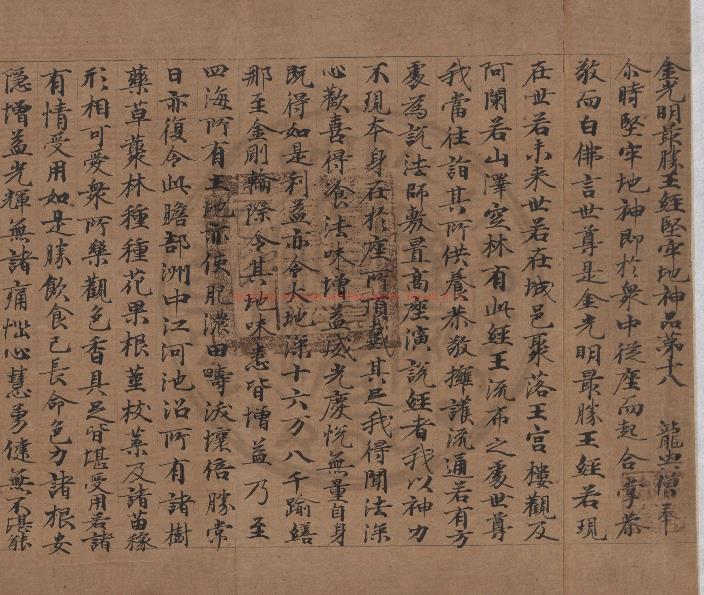 金光明最勝王經堅牢地神品第十八 龍興僧奉
尒時堅牢地神即於衆中從座而起合掌恭
敬而白佛言世尊是金光明最勝王經若現
在世若未來世若在城邑聚落王宮樓觀及
阿蘭若山澤空林有此經王流布之處世尊
我當往詣其所供養恭敬擁護流通若有方
處為說法師敷置高座演說經者我以神力
不現本身在於座所頂戴其足我得聞法深
心歡喜得飡法味增益威光慶悅無量自身
既得如是利益亦令大地深十六万八千踰繕
那至金剛輪際令其地味悉皆增益乃至
四海所有土地亦使肥濃田疇沃壤倍勝常
日亦復令此贍部洲中江河池沼所有諸樹
藥草叢林種種花果根莖枝葉及諸苗稼
形相可愛衆所樂觀色香具足皆堪受用若諸
有情受用如是勝飲食已長命色力諸根安
隱增益光輝無諸痛惱心慧勇健無不堪能